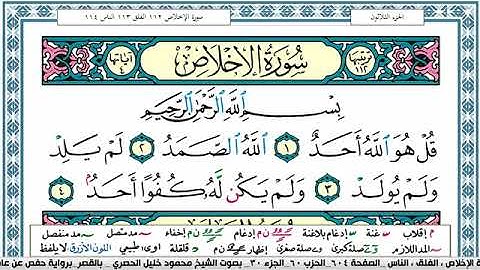 الجزء الثلاثون
سورة الإخلاص ١١٢ الفلق ١١٣ الناس ١١٤
ترتيبها ١١٢ سُورَةُ الإِخْلَاصِ آياتها ٤
بِسْمِ اللَّهِ الرَّحْمَٰنِ الرَّحِيمِ
قُلْ هُوَ اللَّهُ أَحَدٌ ١ اللَّهُ الصَّمَدُ ٢ لَمْ يَلِدْ
وَلَمْ يُولَدْ ٣ وَلَمْ يَكُن لَّهُ كُفُوًا أَحَدٌ ٤
م إقلاب غنة إدغام بلاغنة ن م إدغام ن م إخفاء مد متصل مد منفصل
مد اللازم صلة كبرى صلة صغرى إظهار ن م قلقلة اوى طبيعي اللون الأزرق لا يلفظ
ة الإخلاص ، الفلق ، الناس _ الصفحة ٦٠٤_ الحزب ٦٠_ الجزء ٣٠_ بصوت الشيخ محمود خليل الحصري _ بالقصر _ برواية حفص عن عا